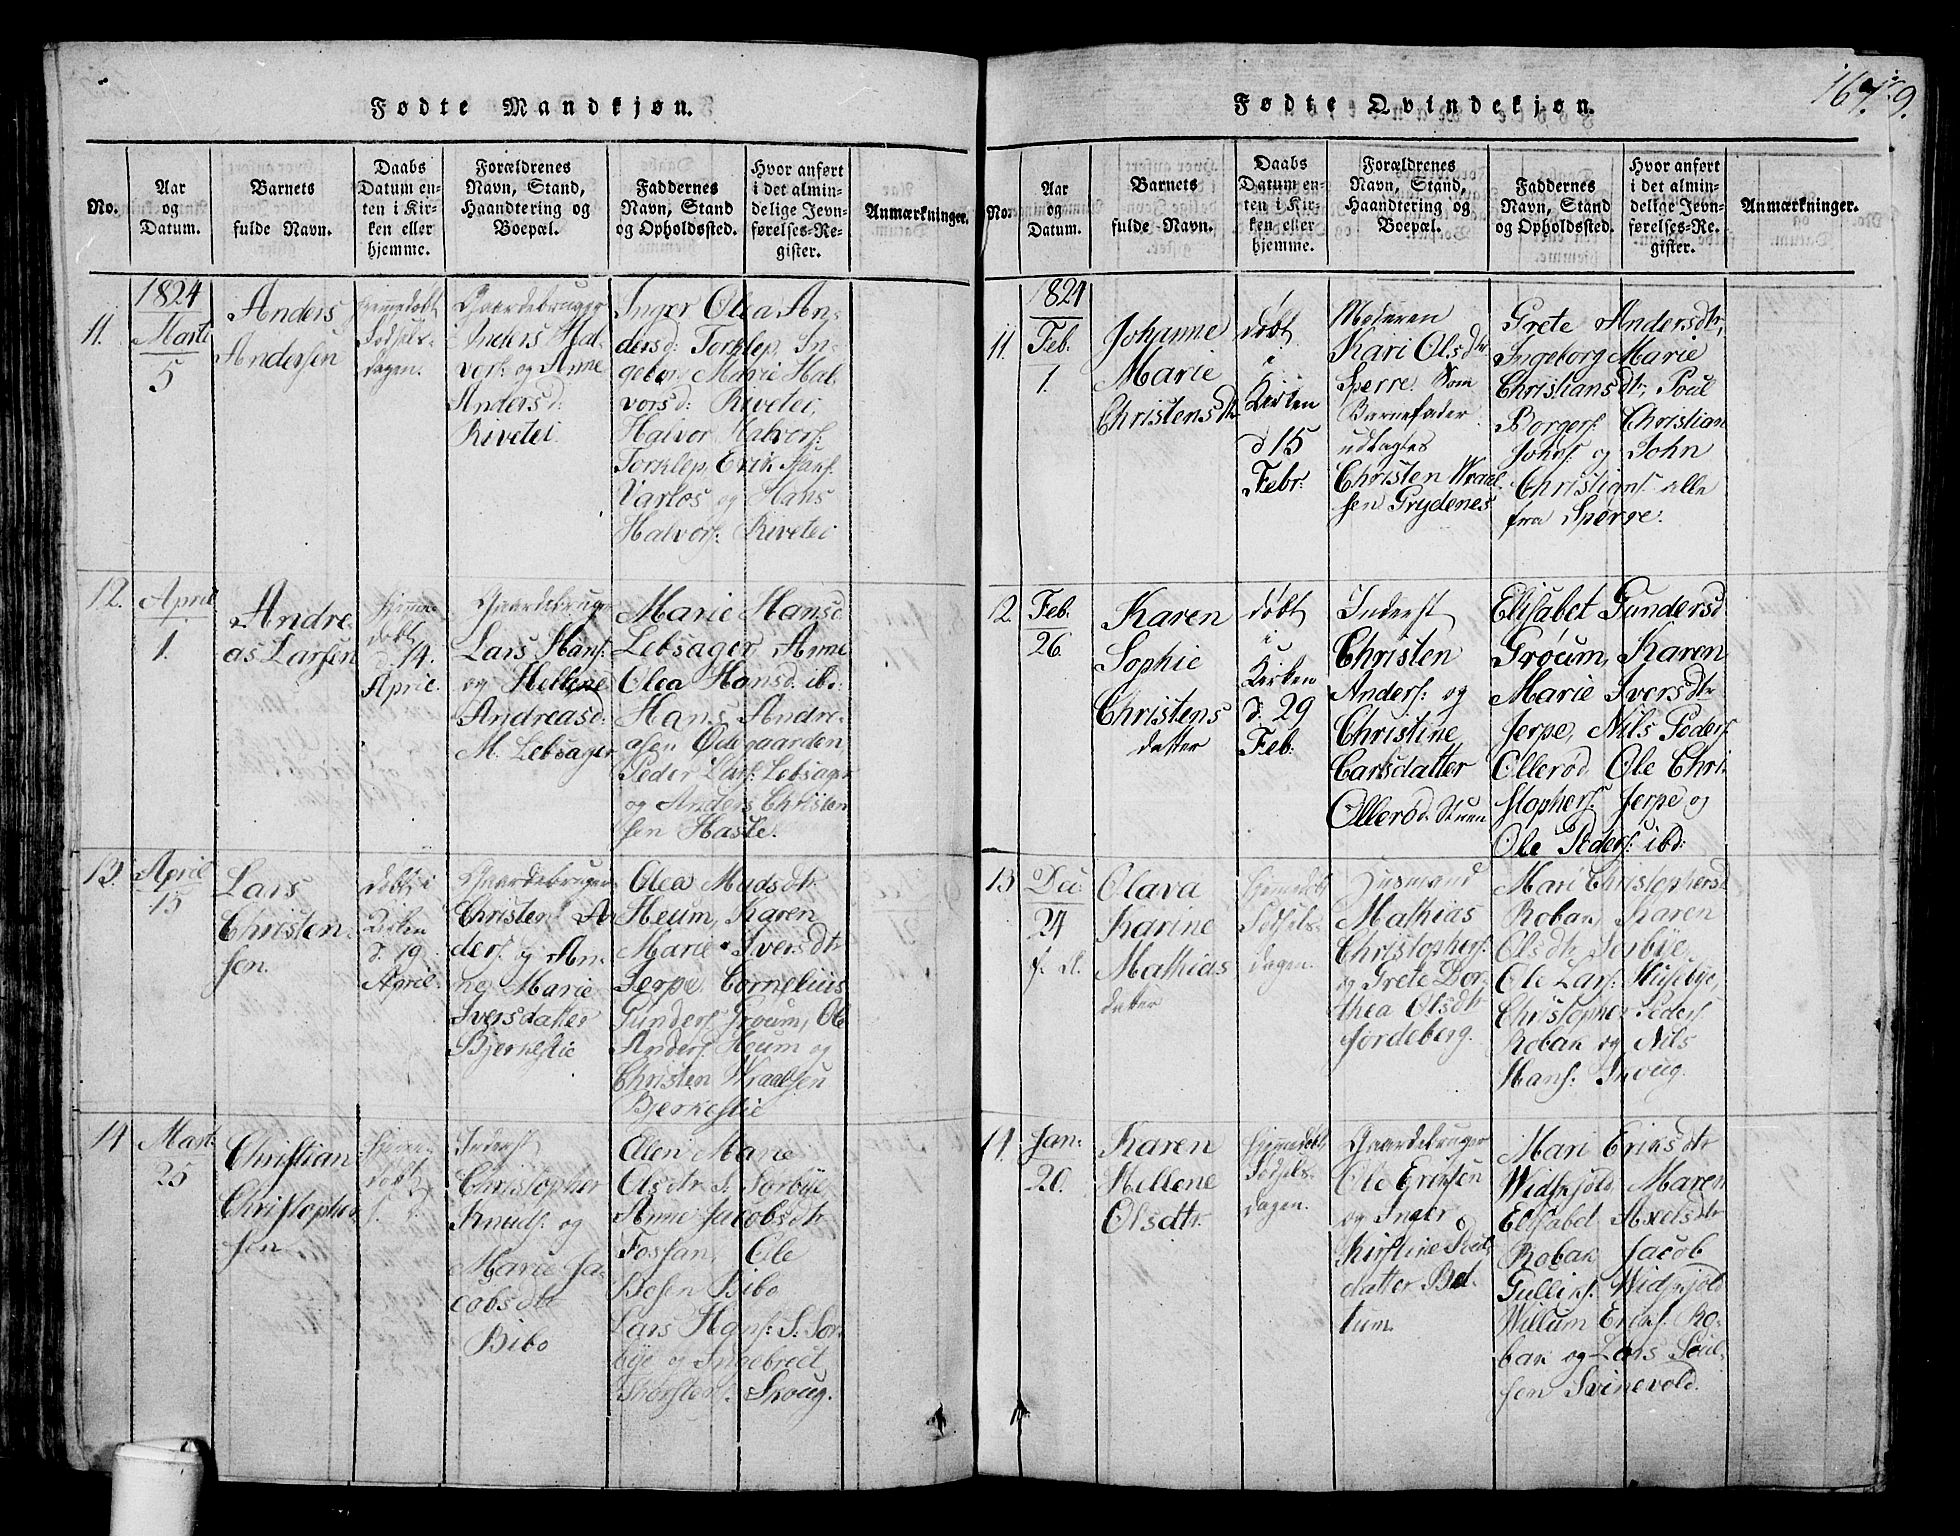 167.
9.
Fødte Mandkjøn.
No.
Aar
og
Datum.
Barnets
fulde Navn.
Daabs
Datum en-
ten i Kir-
ken eller
hjemme.
Forældrenes
Navn, Stand,
Haandtering og
Boepæl.
Faddernes
Navn, Stand
og Opholdssted.
Hvor anført
i det almin-
delige Jevn-
førelses-Re-
gister.
Anmærkninger.
11.
1824
Marti
5
Anders
Andersen
hjemmedøbt
Fødsels-
dagen.
Gaardebruger
Anders Hal-
vors: og Anne
Andersd:
Rivetei
Inger Olea An-
dersd: Torklep, In-
geborg Marie Hal-
vorsd: Rivetei,
Halvor Halvors:
Torklep, Erik Hans:
Varlos og Hans
Halvors: Rivetei
12.
April
1.
Andre
as Larsen
hjemme
døbt
d. 14.
April.
Gaardebruger
Lars Hans:
og Hellene
Andreasd:
M. Lebsager
Marie Hansd
Lebsager, Anne
Olea Hansd. ibd:
Hans Andre-
asen Ødegaarden
Peder Lars: Lebsager
og Anders Christen
sen Haste.
13.
April
15
Lars
Christen-
sen.
døbt i
Kirken
d. 19
April.
Gaardebruger
Christen An
ders: og An-
ne Marie
Iversdatter
Bjerkestie
Olea Madsdtr
Heum, Karen
Marie Iversdtr
Jerpe, Cornelius
Gunders: Grøum, Ole
Anders: Heum og
Christen Wraalsen
Bjerkestie
14
Mart:
25
Christian
Christopher
sen
hjemme
døbt
Inderst
Christopher
Knuds: og
Marie Ja-
cobsdtr
Bibo
Elen Marie
Olsdtr S. Sørbye,
Anne Jacobsdtr
Fossan, Ole
Bosen Bibo
Lars Hans: S. Sør-
bye og Ingebrect
Thorsten: Skoug.
Fødte Qvindekjøn.
No.
Aar
og
Datum.
Barnets
fulde Navn.
Daabs
Datum en-
ten i Kir-
ken eller
hjemme.
Forældrenes
Navn, Stand,
Haandtering og
Boepæl.
Faddernes
Navn, Stand
og Opholdssted.
Hvor anført
i det almin-
delige Jevn-
førelses-Re-
gister.
Anmærkninger.
11.
1824
Feb.
1.
Johanne
Marie
Christensdtr
døbt
i
Kirken
d 15
Febr:
Moderen
Kari Olsdtr
Sperre. Som
Barnefader
udlagtes
Christen Wraal-
sen Grydenes
Grete Andersdtr,
Ingeborg Marie
Christiansdtr, Poul
Borgers: Christian
Johns: og John
Christians: alle
fra Sperre.
12.
Feb.
26.
Karen
Sophie
Christens
datter
døbt
i
Kirken
d. 29
Feb:
Inderst
Christen
Anders: og
Christine
Larsdatter
Ollerød Stuen
Elisabet Gundersd
Grøum, Karen
Marie Iversdtr
Jerpe, Nils Peders:
Ollerød Ole Chri-
stophers: Jerpe og
Ole Peders: ibd:
13
Dec:
24
f. A.
Olava
Karine
Mathias
datter
hjemmedøbt
Fødsels-
dagen.
Husmand
Mathias
Christophers:
og Grete Dor-
thea Olsdtr
Jordeberg.
Mari Christophersd
Roban, Karen
Olsdtr Sørbye,
Ole Lars: Huseby,
Christopher Peders
Roban og Nils
Hans: Skoug.
14.
Jan:
20.
Karen
Hellene
Olsdtr.
hjemmedøbt
Fødsels-
dagen.
Gaardebruger
Ole Eriksen
og Inger
Kirstine Poul
datter Bol
tum.
Mari Eriksdtr
Widskjold Maren
Elisabet Axelsdtr
Roban, Jacob
Gulliks: Widskjold
Willum Eriks: Ro-
ban og Lars Poul-
sen Svinevold.